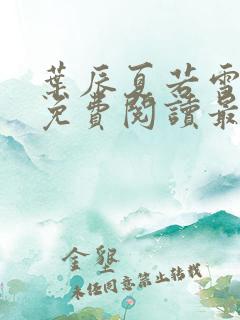 葉辰夏若雪
免費閱讀最
金墾
未經同意禁止轉載